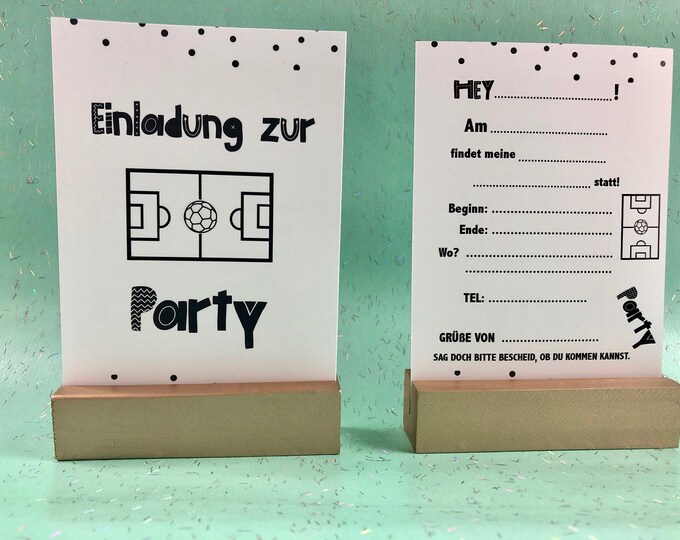 Einladung zur
Party
HEY ........................................!
Am ........................................
findet meine ..............................
........................................ statt!
Beginn: ........................................
Ende: ........................................
Wo? ..................................................
..................................................
TEL: ................................
Party
GRÜßE VON ................................
SAG DOCH BITTE BESCHEID, OB DU KOMMEN KANNST.